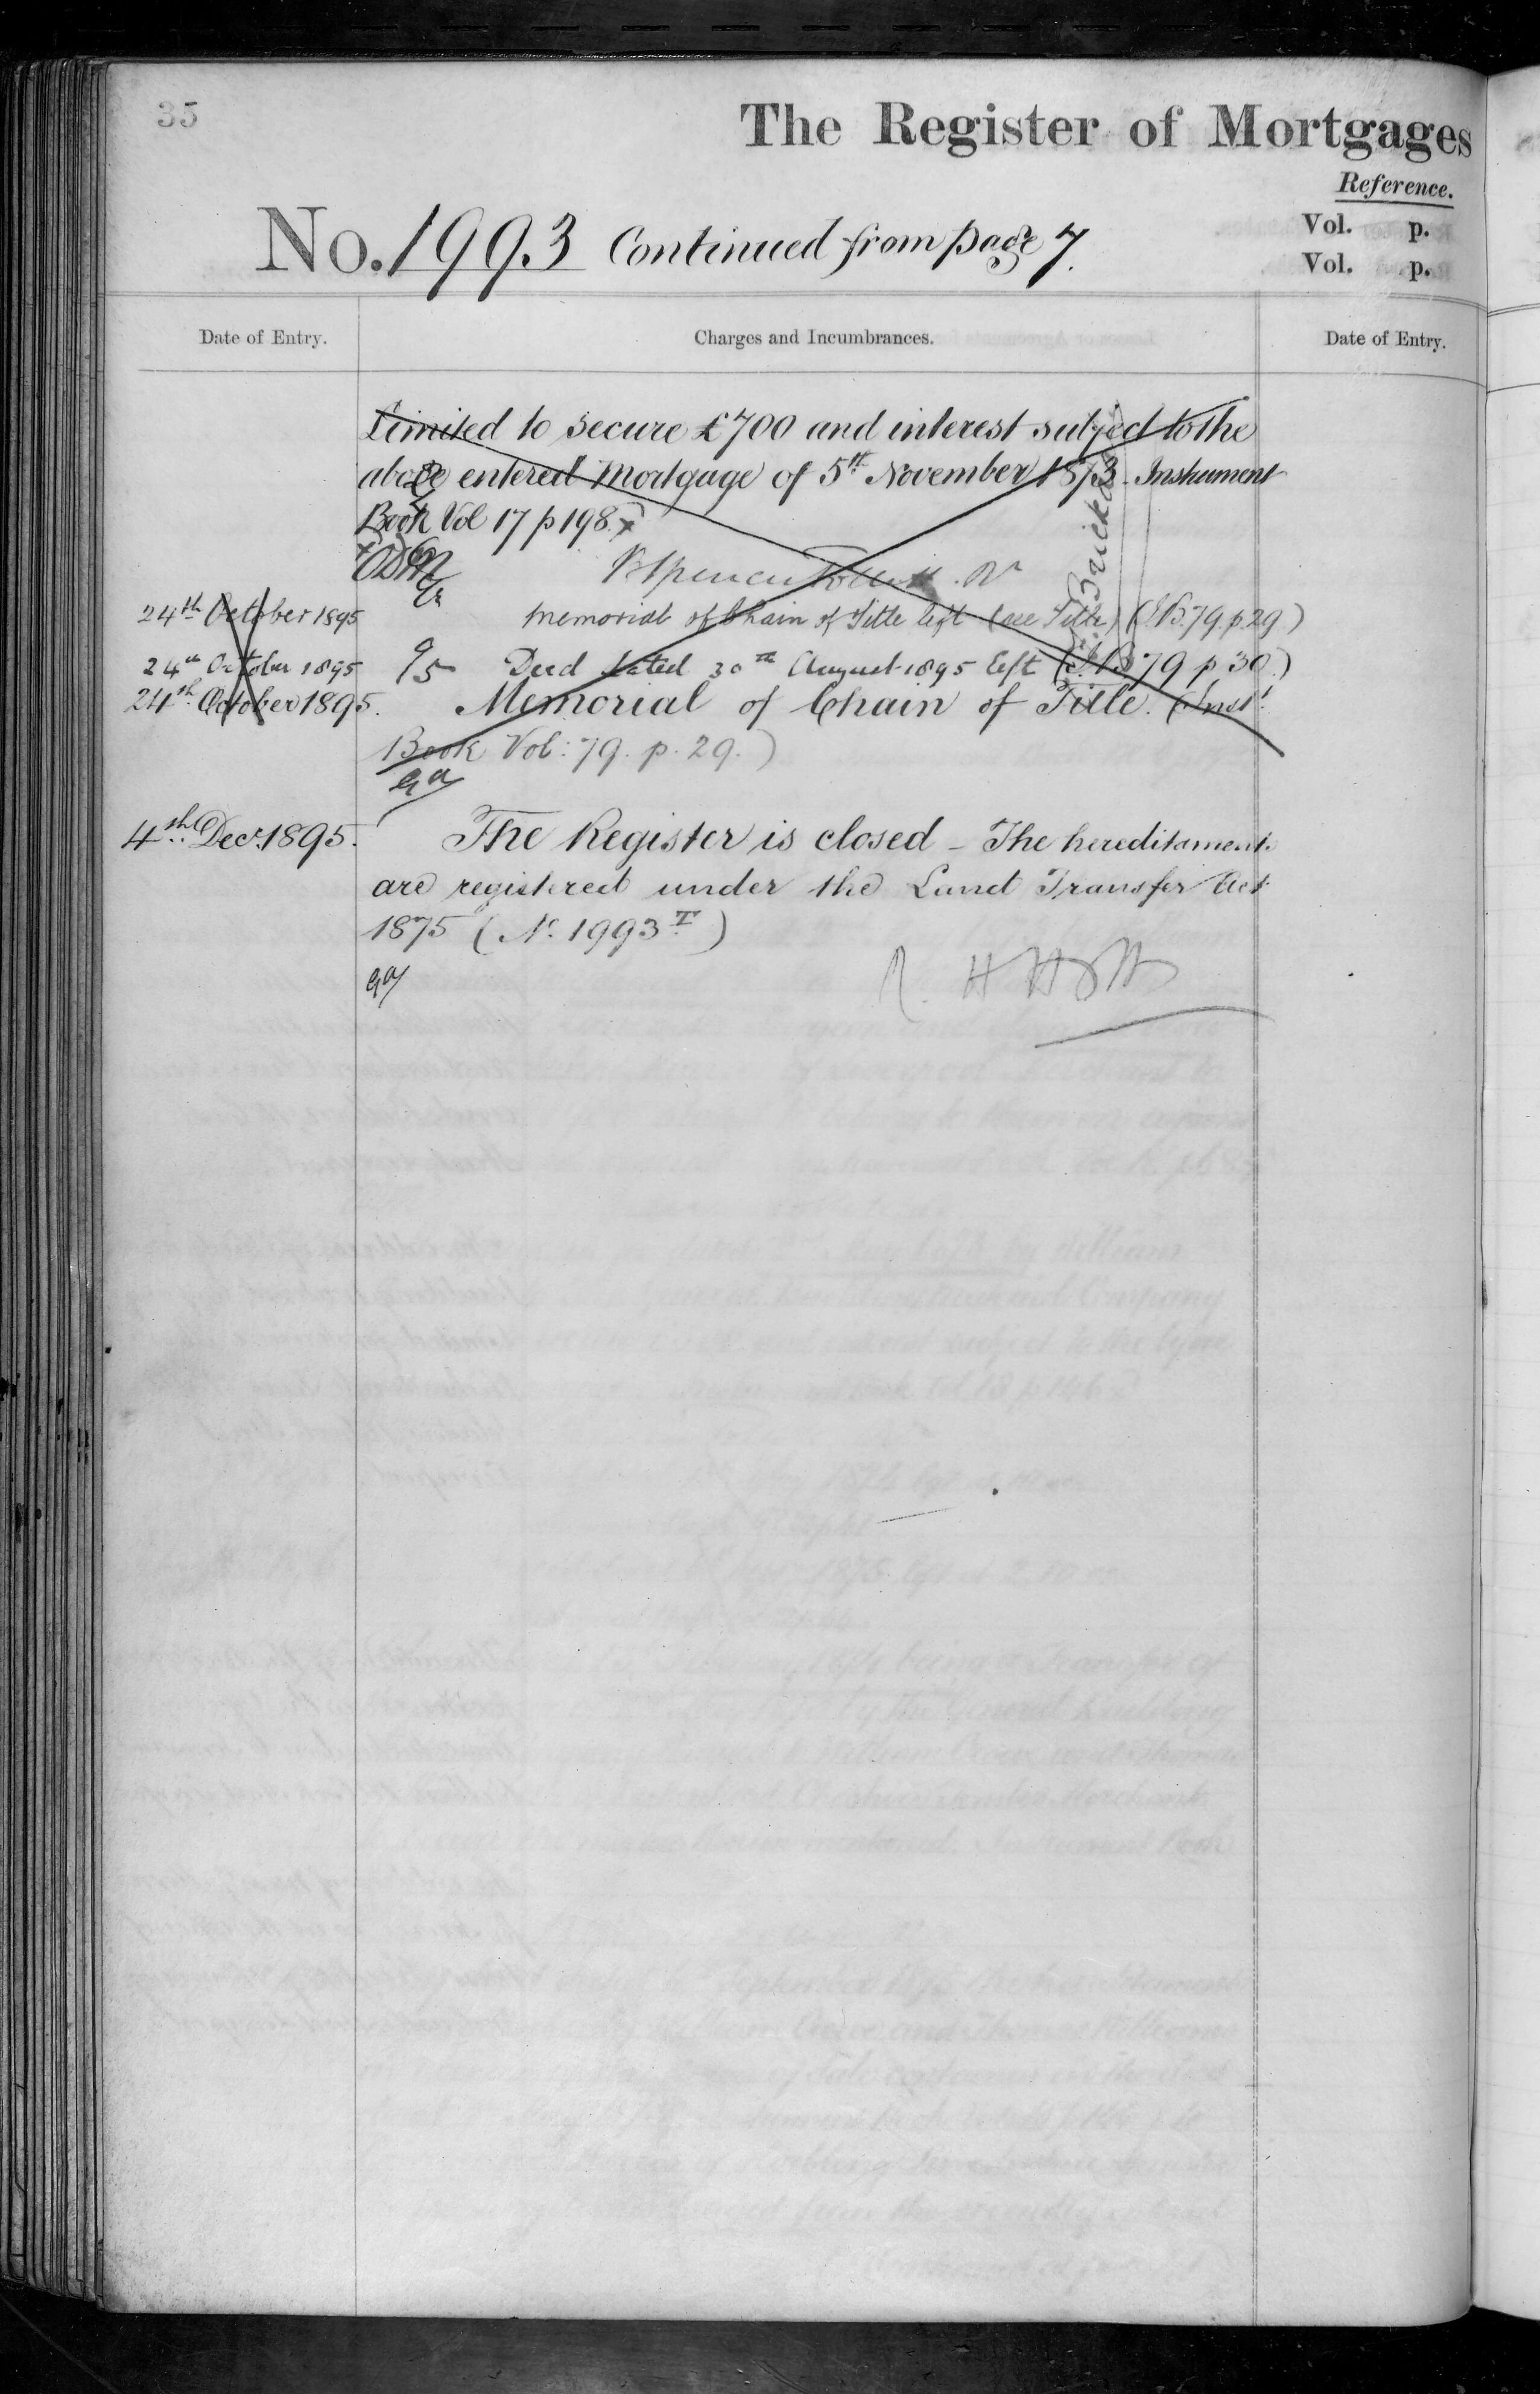 35
The Register of Mortgages
Reference.
No. 1993 Continued from page 7.
Vol. p.
Vol. p.
Date of Entry. Charges and Incumbrances. Date of Entry.
Limited to secure £700 and interest subject to the
above entered Mortgage of 5th November 1873. Instrument
Book Vol 17 p 198
24th October 1895 Memorial of Chain of Title left (see Title) (I.B. 79 p 29)
24th October 1895 95 Deed dated 30th August 1895 left (I.B 79 p 30)
24th October 1895. Memorial of Chain of Title. (Inst.
Book Vol: 79. p. 29.)
4th Decr. 1895. The Register is closed - The hereditaments
are registered under the Land Transfer Act
1875 (No. 1993 T)